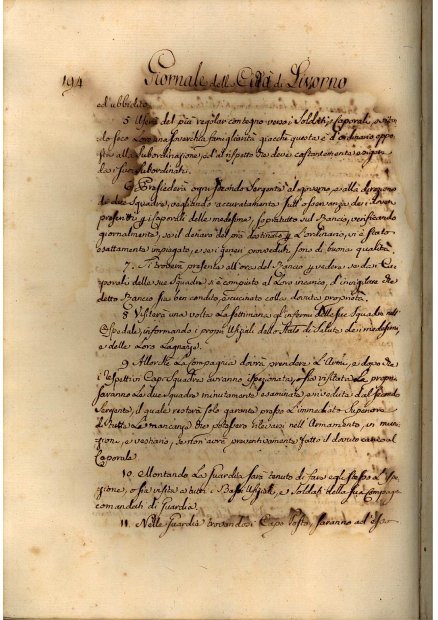 194
Giornale della Città di Livorno
ed ubbidito.
5 Userà del più regolar contegno verso i Soldati, e Caporali, evitan
do seco Loro una soverchia famigliarità giacchè questa è d'ordinario oppo
alla Subordinazione, ed al rispetto che deve costantemente esigere
da i suoi Subordinati.
6. Presiederà ogni secondo Sergente al governo, e alla direzione
di due Squadre, vegliando accuratamente sull'osservanza dei doveri
prescritti a i Caporali delle medesime, soprattutto sul Rancio, verificando
giornalmente, se il denaro del pro destinato L'ordinario, è stato
esattamente impiegato, e se i generi provveduti sono di buona qualità.
7. Si troverà presente all'ora del Rancio vedere se da i Ca
porali delle sue Squadre s'è compito al Loro incarico, d'invigilare che
detto Rancio sia ben condito, cucinato colla dovuta proprietà.
8 Visiterà una volta La settimana gl'infermi delle sue Squadre nell'
Ospedale, informando i propri Ufiziali dello Stato di Salute dei medesimi,
e delle Loro Lagnanze.
9 Allorchè La Compagnia dovrà prendere L'Armi, e dopo che
i rispettivi Capi Squadra avranno ispezionata, o sia visitata La propria
saranno La due Squadre minutamente esaminate, e rivedute dal secondo
Sergente, il quale resterà solo garante presso L'immediato Superiore
di tutte Le mancanze che potessero rilevarsi nell'Armamento, in muni
zioni, e vestiario, se non avrà preventivamente fatto il dovuto carico al
Caporale.
10. Montando La Guardia sarà tenuto di fare egli stesso L'Ispe
zione, o sia visita a tutti i Bassi Ufiziali, e Soldati della sua Compagnia
comandati di Guardia.
11. Nelle Guardie trovandosi Capo Posto, saranno ad esso